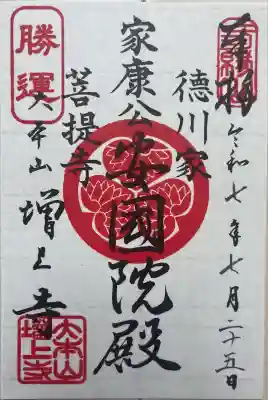 奉拝
令和七年七月二十五日
徳川家
家康公
安國院殿
菩提寺
勝運
大本山
増上寺
大本山
増上寺